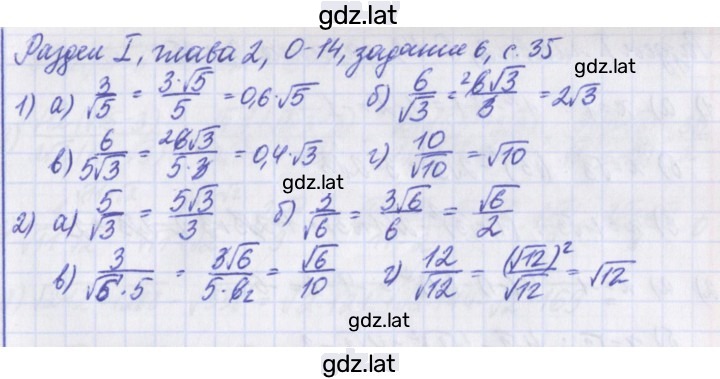 gdz.lat
Раздел I, глава 2, О-14, задание 6, с. 35
gdz.lat
1) а) 3/√5 = 3·√5/5 = 0,6·√5 б) 6/√3 = 2 6√3/3 = 2√3
в) 6/5√3 = 2 6√3/5·3 = 0,4·√3 г) 10/√10 = √10
gdz.lat
2) а) 5/√3 = 5√3/3 б) 3/√6 = 3√6/6 = √6/2
в) 3/√6·5 = 3√6/5·6 2 = √6/10 г) 12/√12 = (√12)²/√12 = √12
gdz.lat
gdz.lat